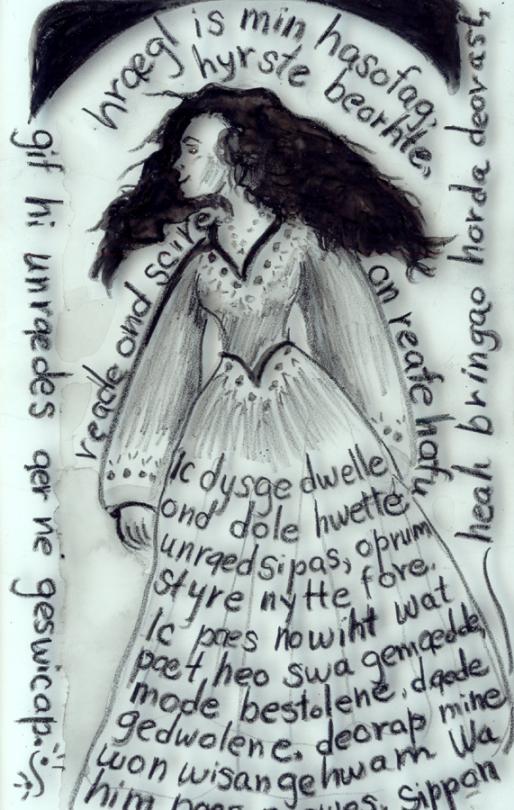 hrægl is min hasofag,
hyrste bearhte,
reade ond scire
on reafe hafu
Ic dysge dwelle
ond dole hwette
unrædsiþas, oþrum
styre nytte fore.
Ic þæs nowiht wat
þæt heo swa gemædde,
mode bestolene, dæde
gedwolene, deoraþ mine
won wisan gehwam Wa
him þæs siþþan
heah bringað horda deorast,
gif hi unrædes ær ne geswicaþ.